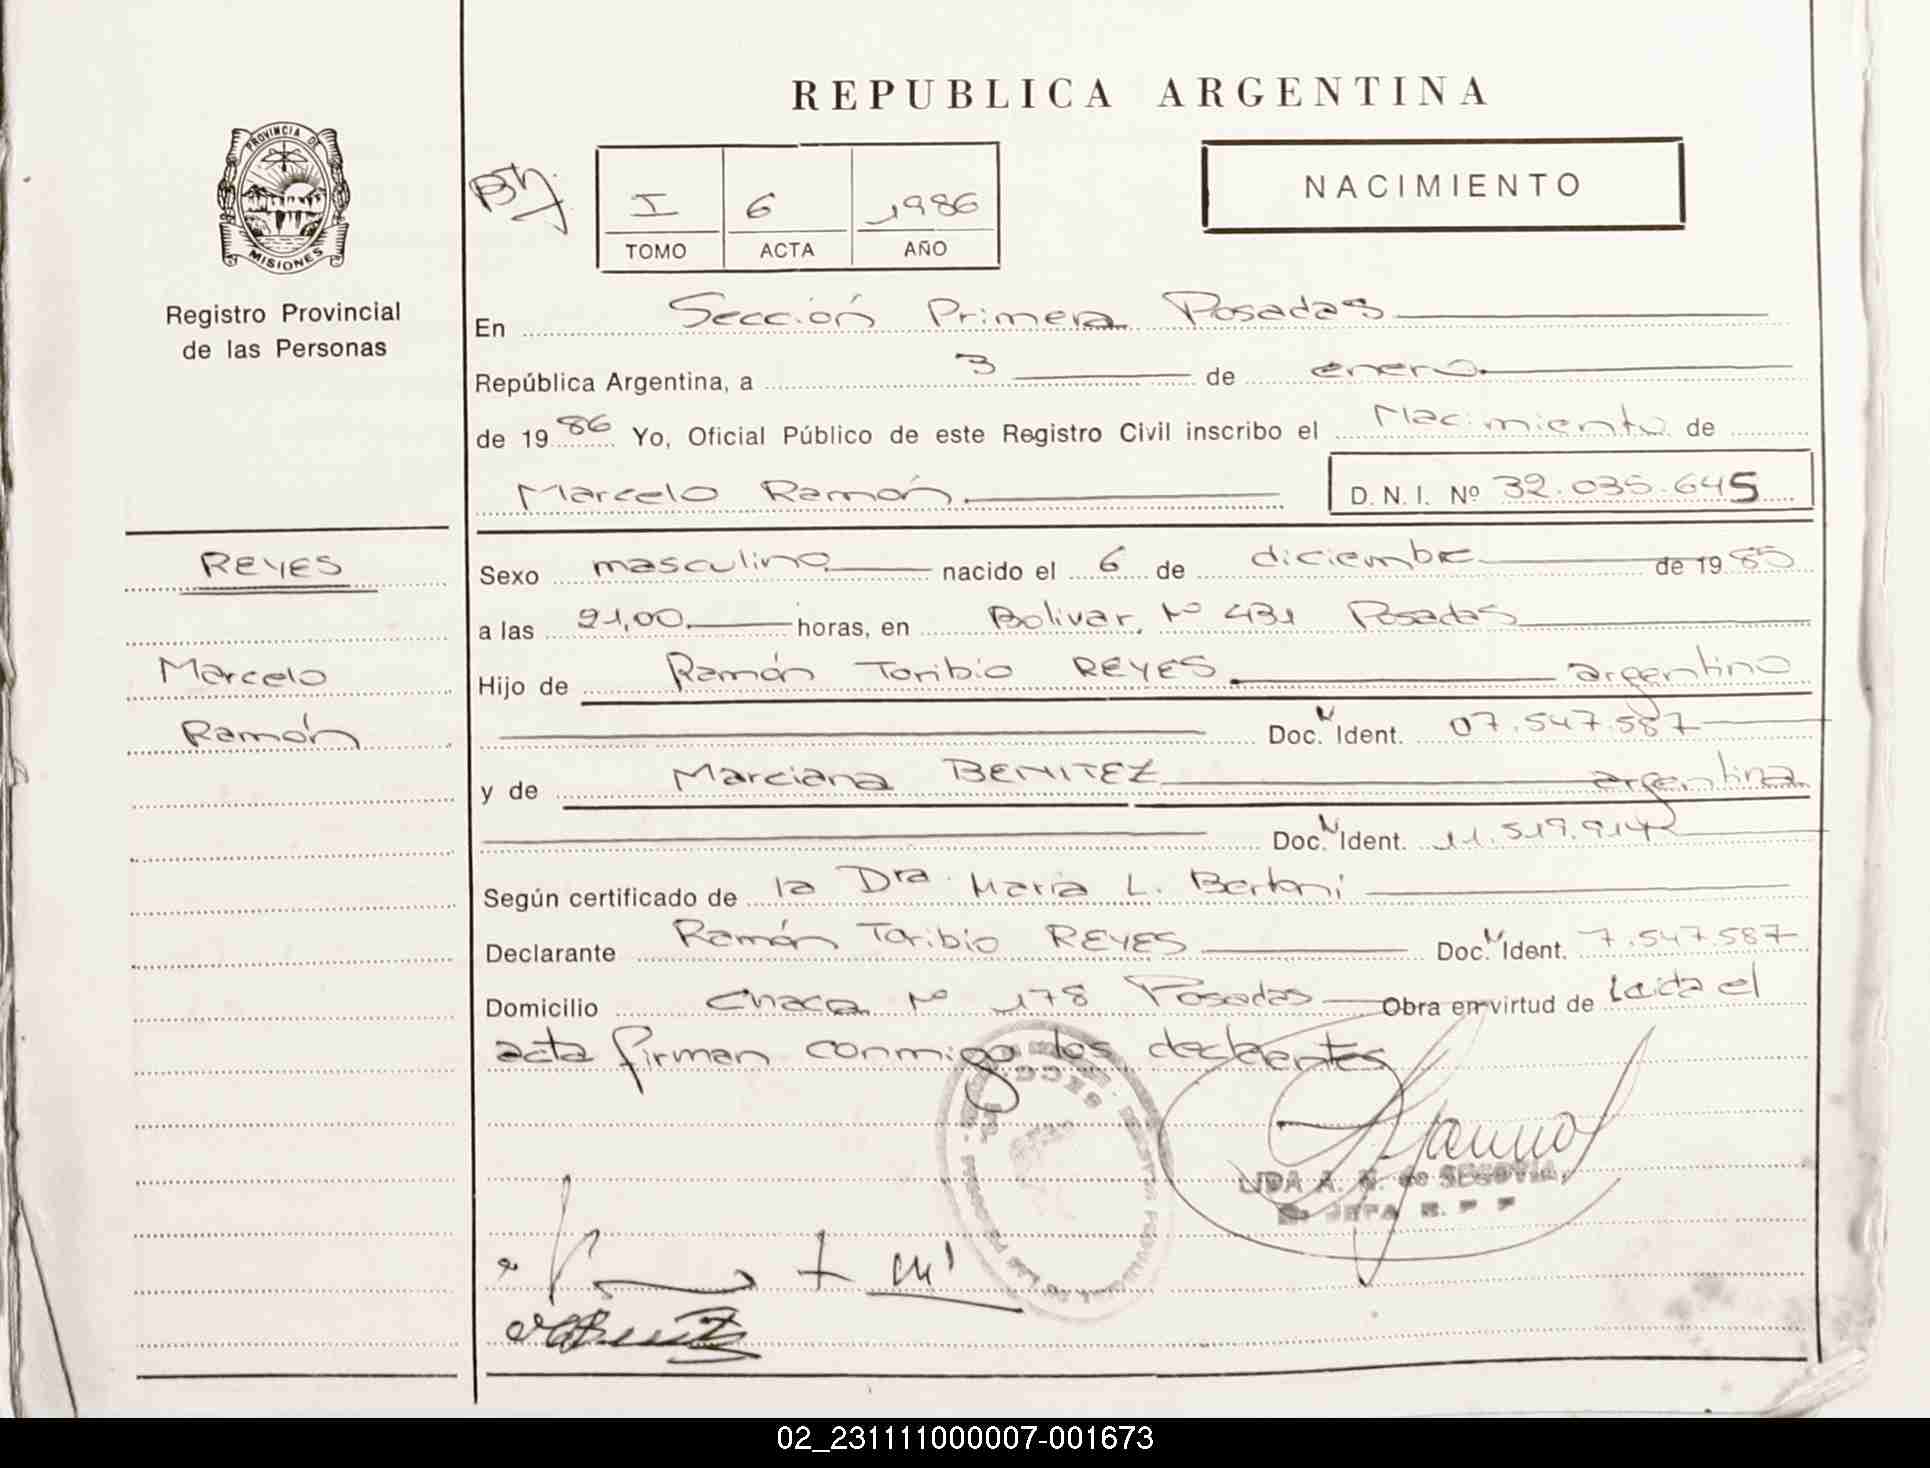 REPUBLICA ARGENTINA
PROVINCIA DE
MISIONES
Registro Provincial
de las Personas
I 6 1986
TOMO ACTA AÑO
NACIMIENTO
En Sección Primera Posadas
República Argentina, a 3 de enero
de 1986 Yo, Oficial Público de este Registro Civil inscribo el Nacimiento de
Marcelo Ramón D.N.I. Nº 32.035.645
REYES
Marcelo
Ramón
Sexo masculino nacido el 6 de diciembre de 1985
a las 21,00 horas, en Bolivar Nº 431 Posadas
Hijo de Ramón Toribio REYES argentino
Doc. N Ident. 07.547.587
y de Marciana BENITEZ argentina
Doc. N Ident. 11.519.914
Según certificado de la Dra. Maria L. Bertoni
Declarante Ramón Toribio REYES Doc. N Ident. 7.547.587
Domicilio Chaca Nº 178 Posadas Obra en virtud de Leida el
acta firman conmigo los declarantes
LIDA A. N. de SEGOVIA
JEFA R. P. P.
02_231111000007-001673